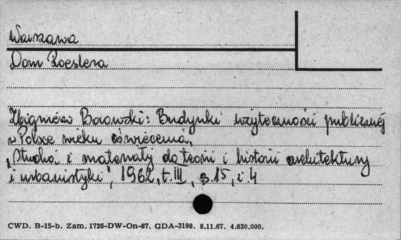 Warszawa
Dom Roeslera
Zbigniew Borowski: Budynki użyteczności publicznej
w Polsce wieku oświecenia,
"Studia i materiały do teorii i historii architektury
i urbanistyki", 1962, t. III, s. 15, i. 4
CWD. B-15-b. Zam. 1726-DW-On-67. GDA-3198. 8.11.67. 4.630.000.